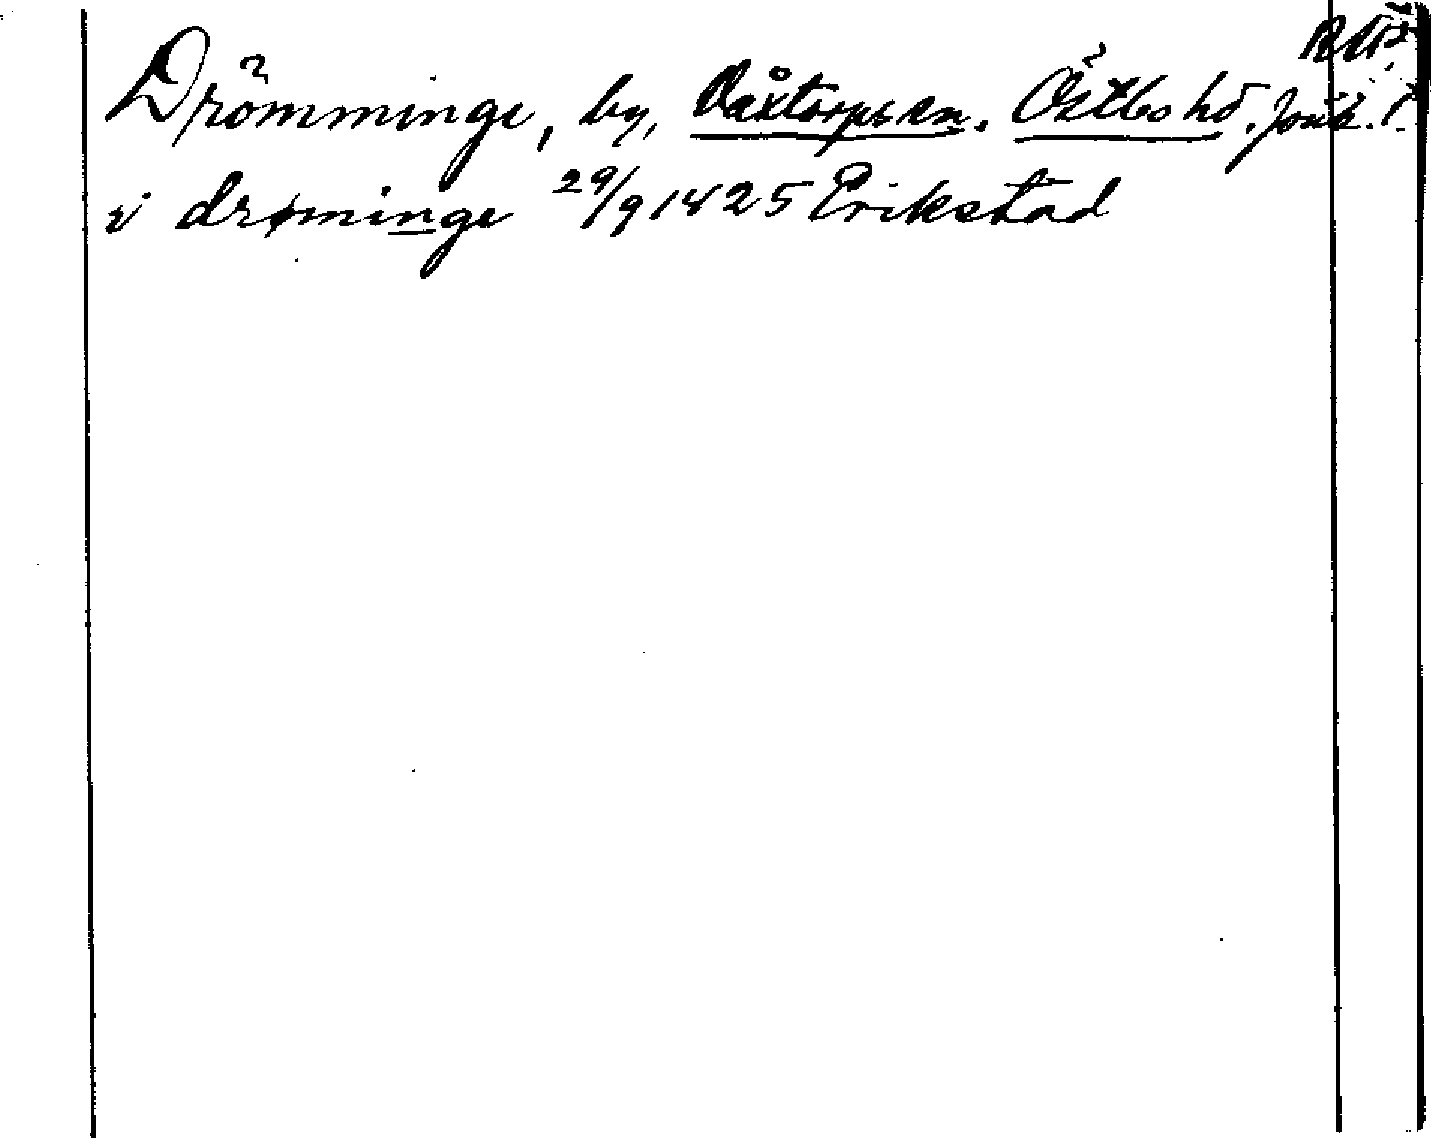 Drömminge, by, Våxtorps sn. Östbo hd. Jönk. l
i drøminge 29/9 1825 Erikstad